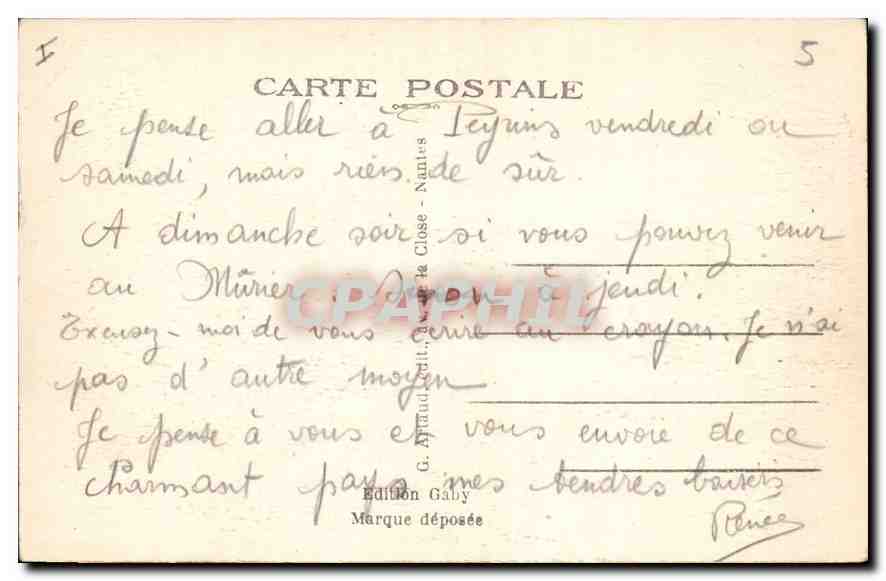 I
5
CARTE POSTALE
Je pense aller à Peyrins vendredi ou
samedi, mais riens de sûr.
A dimanche soir si vous pouvez venir
au Mûrier, sinon à jeudi.
Excusez-moi de vous écrire au crayon. Je n'ai
pas d'autre moyen
Je pense à vous et vous envoie de ce
charmant pays mes tendres baisers
Renée
G. Artaud, Edit., av. de la Close - Nantes
Edition Gaby
Marque déposée
CPAPHIL